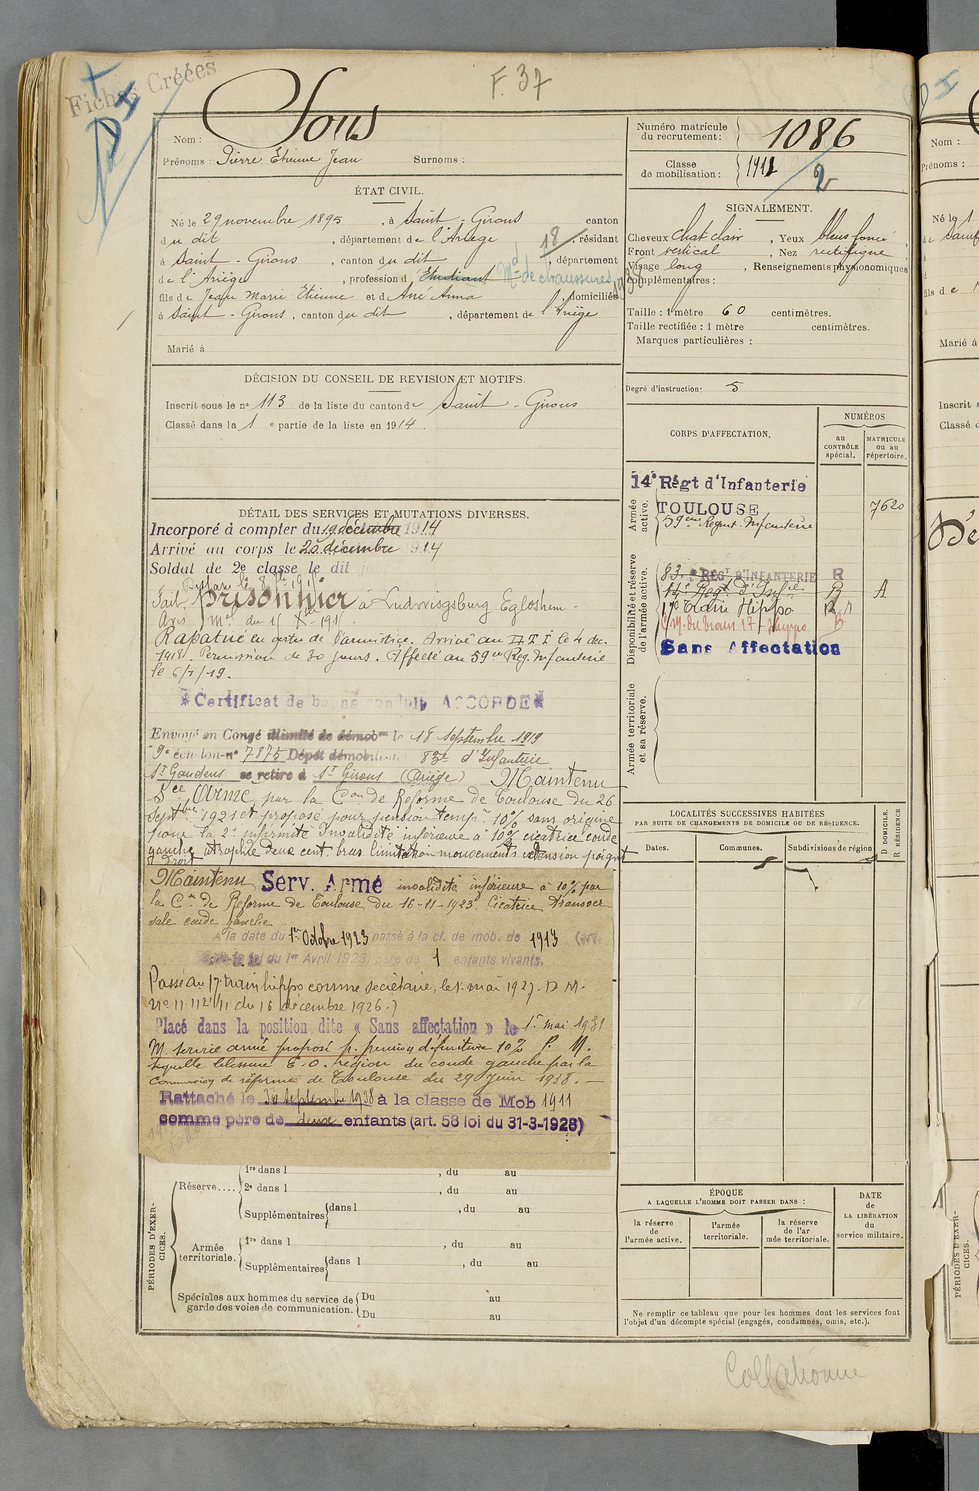 Fiches Créées
F. 37
Nom : Sous
Prénoms : Pierre Etienne Jean Surnoms :
ÉTAT CIVIL.
Né le 29 novembre 1895, à Saint-Girons canton
du dit, département de l'Ariège, résidant
à Saint-Girons, canton du dit, département
de l'Ariège, profession d'Etudiant Md de chaussures
18
fils de Jean Marie Etienne et de Ané Anna, domiciliés
à Saint-Girons, canton du dit, département de l'Ariège
Marié à
DÉCISION DU CONSEIL DE REVISION ET MOTIFS.
Inscrit sous le n° 113 de la liste du canton de Saint-Girons
Classé dans la 1e partie de la liste en 1914
DÉTAIL DES SERVICES ET MUTATIONS DIVERSES.
Incorporé à compter du 19 décembre 1914
Arrivé au corps le 20 décembre 1914
Soldat de 2e classe le dit jour
Fait Prisonnier à Ludwigsburg Eglosheim
Avis
Rapatrié en vertu de l'armistice. Arrivé au le 4 déc.
1918. Permission de 30 jours. Affecté au 59e Rég. Infanterie
le 6/1/19.
Certificat de bonne conduite ACCORDÉ
Envoyé en Congé illimité de démobon le 18 Septembre 1919
9e échelon n° 7875 Dépôt démobilisateur 83e d'Infanterie
St Gaudens se retire à St Girons (Ariège) Maintenu
Sce Armé par la Con de Réforme de Toulouse du 26
Septbre 1921 et proposé pour pension tempre 10% sans origine
pour la 2e infirmité Invalidité inférieure à 10% cicatrice coude
gauche atrophie deux cent. bras limitation mouvements extension poignet
droit
Maintenu Serv. Armé invalidité inférieure à 10% par
la Con de Réforme de Toulouse du 16-11-1923 Cicatrice transver
sale coude gauche
A la date du 1er Octobre 1923 passé à la cl. de mob. de 1913 (art.
de la loi du 1er Avril 1923) père de 1 enfants vivants.
Passé au 17e train hippo comme secrétaire, le 1er mai 1927. D.M.
N° 11.112 1/11 du 16 décembre 1926.)
Placé dans la position dite « Sans affectation » le 1er mai 1931
M. service armé proposé p. pension définitive 10% P. M.
Séquelle blessure E.O. région du coude gauche par la
Commission de réforme de Toulouse du 29 Juin 1938.
Rattaché le 30 septembre 1938 à la classe de Mob 1911
comme père de deux enfants (art. 58 loi du 31-3-1928)
PÉRIODES D'EXERCICES.
Réserve.... 1re dans l , du au
2e dans l , du au
Supplémentaires dans l , du au
Armée territoriale. 1re dans l , du au
Supplémentaires dans l , du au
Spéciales aux hommes du service de garde des voies de communication. Du au
Du au
Numéro matricule du recrutement : 1086
Classe de mobilisation : 1911 2
SIGNALEMENT.
Cheveux chat clair, Yeux bleus foncé
Front vertical, Nez rectiligne
Visage long, Renseignements physionomiques
complémentaires :
Taille : 1 mètre 60 centimètres.
Taille rectifiée : 1 mètre centimètres.
Marques particulières :
Degré d'instruction : 5
CORPS D'AFFECTATION.
NUMÉROS
au CONTRÔLE spécial.
MATRICULE OU AU répertoire.
Armée active.
14e Régt d'Infanterie
TOULOUSE 7620
59eme Regmt. Infanterie
Disponibilité et réserve de l'armée active.
83e RÉGt D'INFANTERIE R
14e Regt d'Infie R A
17e Train Hippo
C.M. du train 17 Hippo B
Sans Affectation
Armée territoriale et sa réserve.
LOCALITÉS SUCCESSIVES HABITÉES
PAR SUITE DE CHANGEMENTS DE DOMICILE OU DE RÉSIDENCE.
Dates. Communes. Subdivisions de région
D DOMICILE.
R RÉSIDENCE
ÉPOQUE
A LAQUELLE L'HOMME DOIT PASSER DANS :
la réserve de l'armée active.
l'armée territoriale.
la réserve de l'ar mée territoriale.
DATE DE LA LIBÉRATION du service militaire.
Ne remplir ce tableau que pour les hommes dont les services font
l'objet d'un décompte spécial (engagés, condamnés, omis, etc.).
Collationné
Nom :
Prénoms :
Né le 1
fils de
Marié à
Inscrit s
Classé d